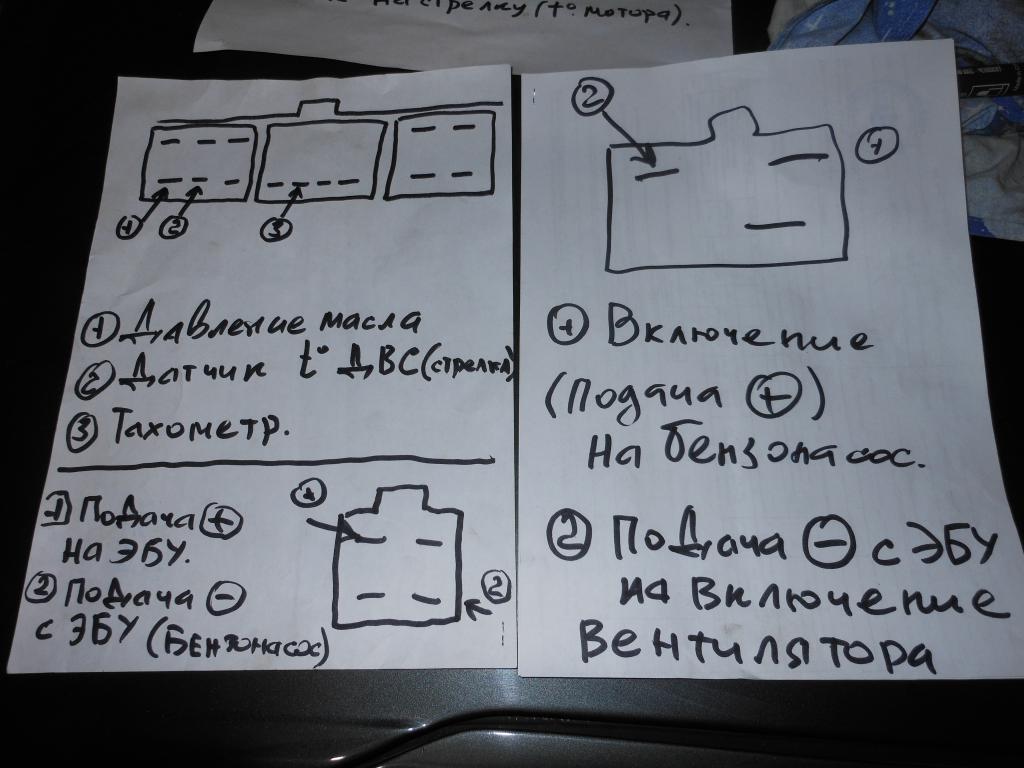 на стрелку (t° мотора).
① ② ③
① Давление масла
② Датчик t° ДВС (стрелка)
③ Тахометр.
① Подача ⊕
на ЭБУ.
② Подача ⊖
с ЭБУ (Бензонасос)
① ②
② ①
① Включение
(Подача ⊕)
на бензонасос.
② Подача ⊖ с ЭБУ
на включение
вентилятора